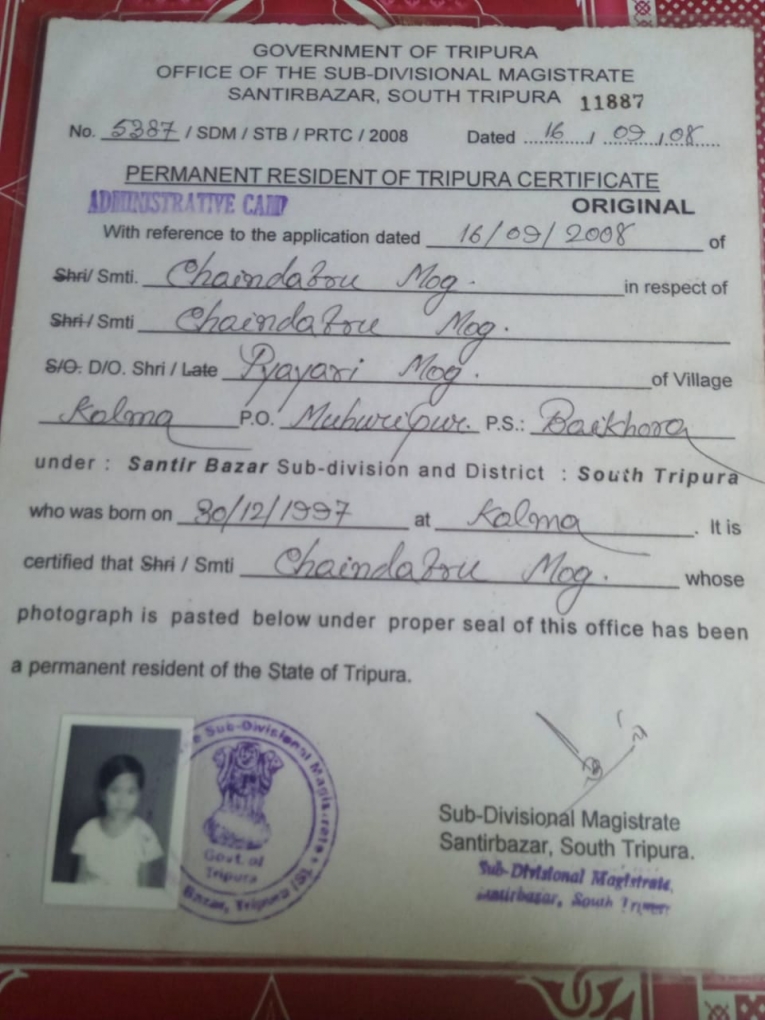 GOVERNMENT OF TRIPURA
OFFICE OF THE SUB-DIVISIONAL MAGISTRATE
SANTIRBAZAR, SOUTH TRIPURA 11887
No. 5387 / SDM / STB / PRTC / 2008 Dated 16 / 09 / 08
PERMANENT RESIDENT OF TRIPURA CERTIFICATE
ADMINISTRATIVE CAMP ORIGINAL
With reference to the application dated 16/09/2008 of
Shri/ Smti. Chaindafru Mog. in respect of
Shri / Smti Chaindafru Mog.
S/O. D/O. Shri / Late Pyayari Mog. of Village
Kalma P.O. Muhuripur. P.S.: Baikhora
under : Santir Bazar Sub-division and District : South Tripura
who was born on 30/12/1997 at Kalma . It is
certified that Shri / Smti Chaindafru Mog. whose
photograph is pasted below under proper seal of this office has been
a permanent resident of the State of Tripura.
Sub-Divisional Magistrate
Govt. of
Tripura
Bazar, Tripura (S)
Sub-Divisional Magistrate
Santirbazar, South Tripura.
Sub-Divisional Magistrate,
Santirbazar, South Tripura